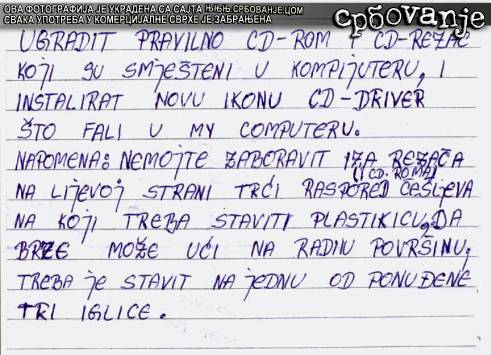 ОВА ФОТОГРАФИЈА ЈЕ УКРАДЕНА СА САЈТА ЊЊЊ.СРБОВАЊЕ.ЦОМ
СВАКА УПОТРЕБА У КОМЕРЦИЈАЛНЕ СВРХЕ ЈЕ ЗАБРАЊЕНА
србовање
UGRADIT PRAVILNO CD-ROM I CD-REZAČ
KOJI SU SMJEŠTENI U KOMPIJUTERU, I
INSTALIRAT NOVU IKONU CD-DRIVER
ŠTO FALI U MY COMPUTERU.
NAPOMENA: NEMOJTE ZABORAVIT IZA REZAČA
(I CD. ROMA)
NA LIJEVOJ STRANI TRĆI RASPORED ČEŠLJEVA
NA KOJI TREBA STAVITI PLASTIKICU, DA
BRZE MOŽE UĆI NA RADNU POVRŠINU.
TREBA JE STAVIT NA JEDNU OD PONUĐENE
TRI IGLICE.